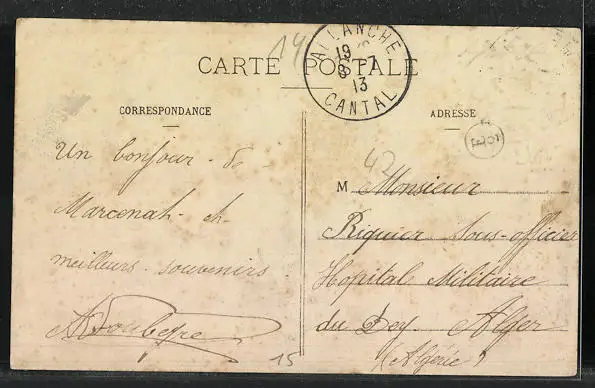 14
ALLANCHE
19
8-7
13
CANTAL
CARTE POSTALE
CORRESPONDANCE
Un bonjour de
Marcenat et
meilleurs souvenirs
15
ADRESSE
E
42
M Monsieur
Riquier Sous-officier
Hopital Militaire
du Dey. Alger
(Algérie)